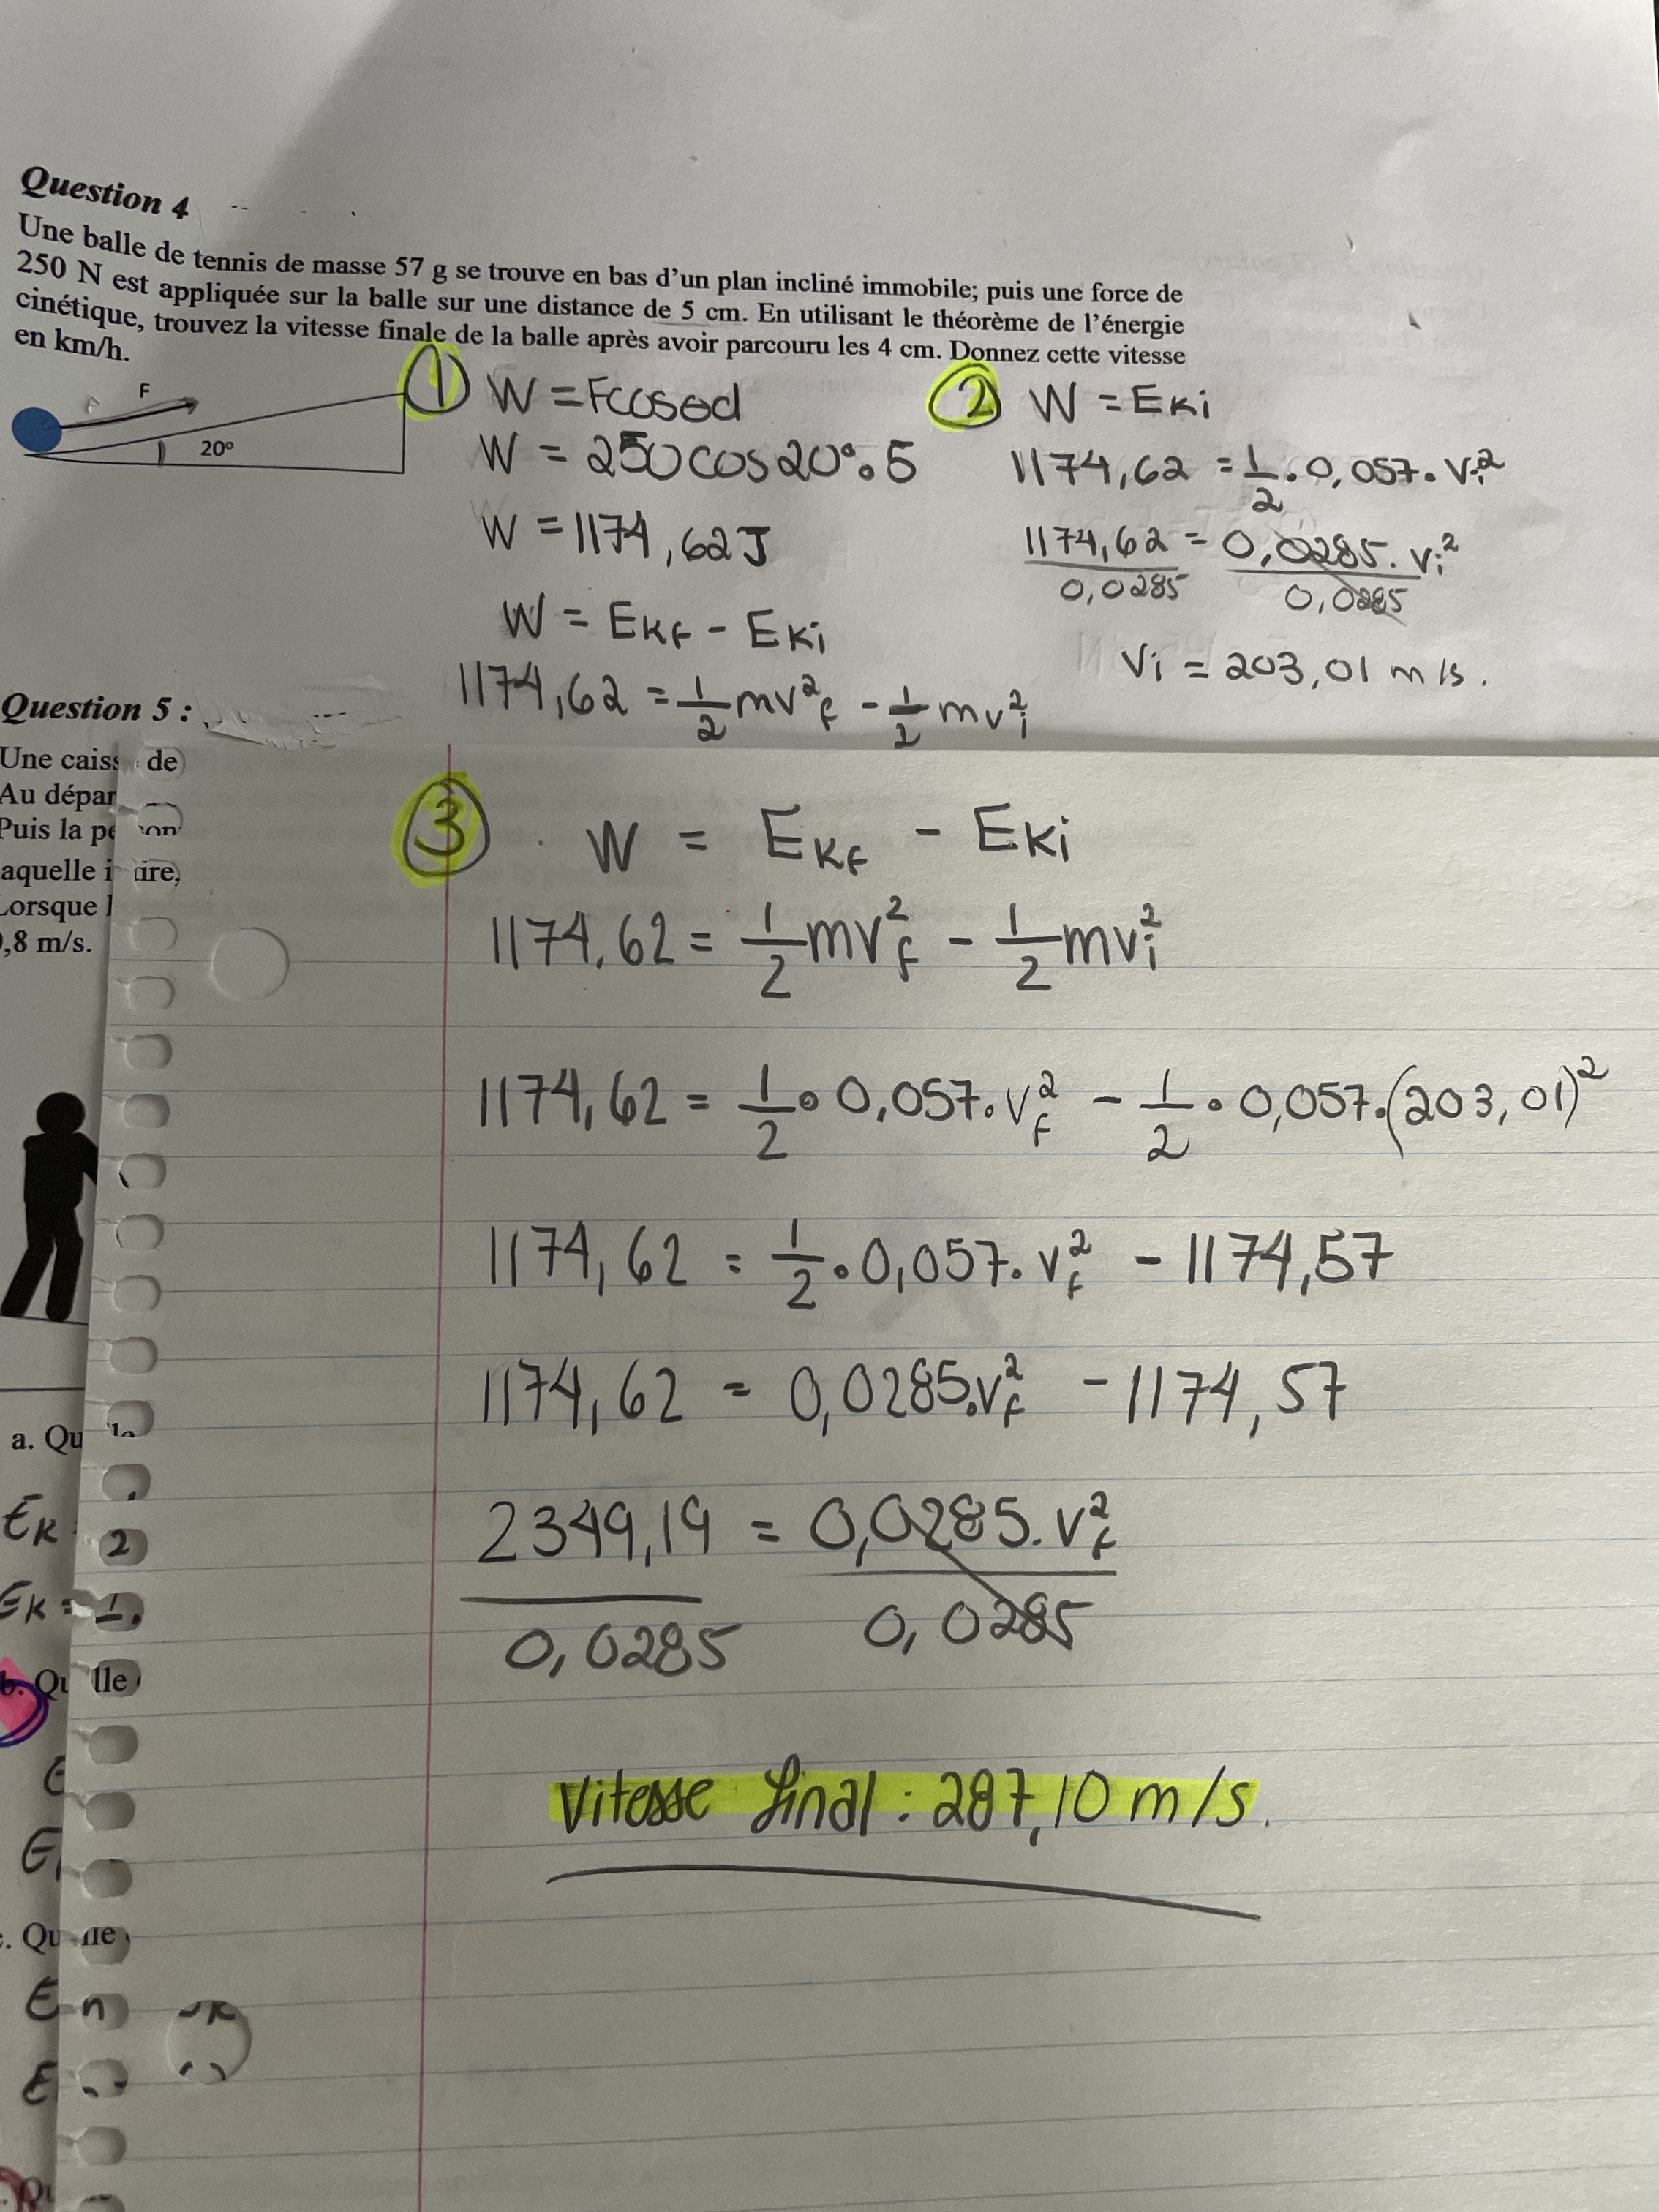 Question 4
Une balle de tennis de masse 57 g se trouve en bas d'un plan incliné immobile; puis une force de
250 N est appliquée sur la balle sur une distance de 5 cm. En utilisant le théorème de l'énergie
cinétique, trouvez la vitesse finale de la balle après avoir parcouru les 4 cm. Donnez cette vitesse
en km/h.
F
20°
① W = Fcosθd
W = 250cos20°•5
W = 1174,62J
W = EKf - EKi
1174,62 = 1/2 mv²f - 1/2 mv²i
② W = EKi
1174,62 = 1/2 • 0,057 • vi²
1174,62 = 0,0285. vi²
0,0285 0,0285
Vi = 203,01 m/s.
Question 5 :
Une caiss de
Au dépar
Puis la pe
aquelle i ire,
Lorsque l
,8 m/s.
③ W = EKf - EKi
1174,62 = 1/2 mvf² - 1/2 mvi²
1174,62 = 1/2 • 0,057. vf² - 1/2 • 0,057.(203,01)²
1174,62 = 1/2 • 0,057. vf² - 1174,57
1174,62 = 0,0285.vf² - 1174,57
2349,19 = 0,0285. vf²
0,0285 0,0285
Vitesse final : 287,10 m/s.
a. Qu
EK
2
EK = 1
b. Qu lle
E
E
. Qu
E n
E
Qu